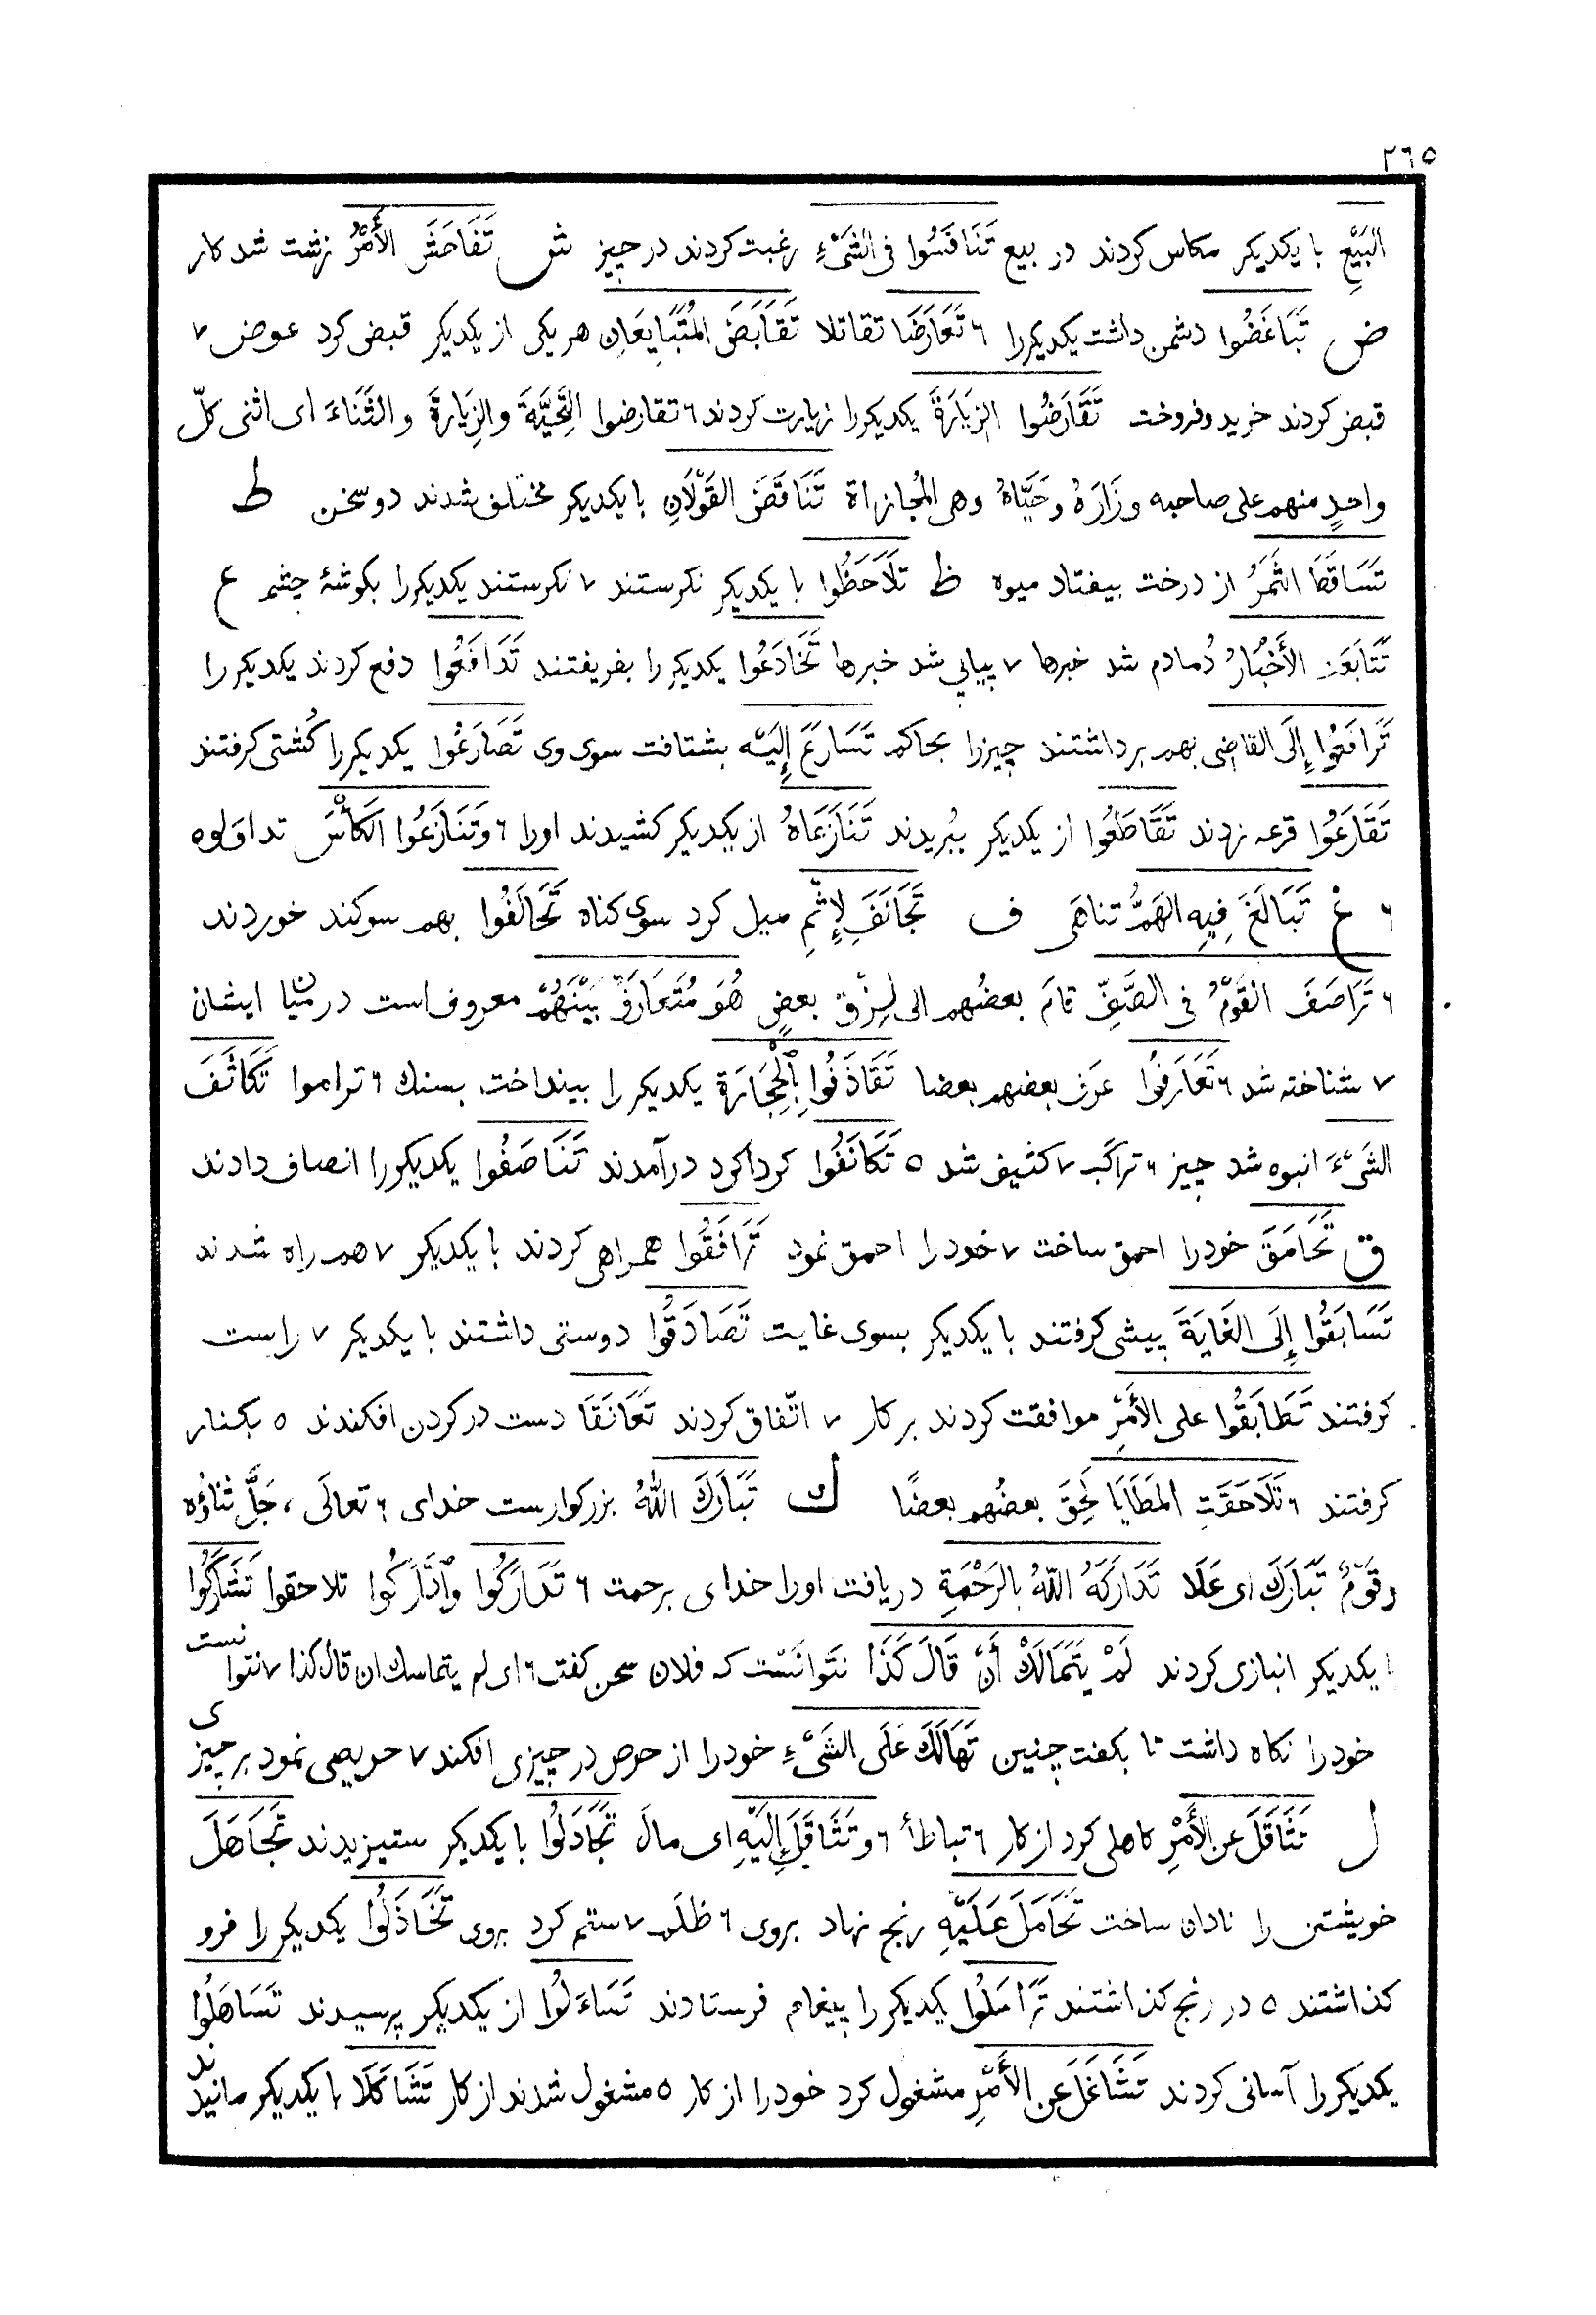 ٢٦٥
البَيْعِ با یکدیکر مکاس کردند در بیع تَنَافَسُوا فی الشَیْءِ رغبت کردند در چیز ش تَفَاحَشَ الأَمْرُ زشت شد کار
ض تَبَاغَضُوا دشمن داشت یکدیکررا ٦ تَعَارَضَا تقاتلا تَقَابَضَ المُتَبَايِعَانِ هر یکی از یکدیکر قبض کرد عوض ٧
قبض کردند خرید و فروخت تَقَارَضُوا الزِيَارَةَ یکدیکررا زیارت کردند ٦ تقارضوا التَّحِيَّةَ والزِيَارَةَ والثَنَاءَ ای اثنی کلّ
واحدٍ منهم علی صاحبه وزَارَهُ وحَيَّاهُ وهی المُجازاة تَنَاقَضَ القَوْلَانِ با یکدیکر مختلف شدند دو سخن ط
تَسَاقَطَ الثَمَرُ از درخت بیفتاد میوه ظ تَلَاحَظُوا با یکدیکر نکرستند ٧ نکرستند یکدیکررا بکوشۀ چشم ع
تَتَابَعَتِ الأَخْبَارُ دُمادم شد خبرها ٧ پیاپی شد خبرها تَخَادَعُوا یکدیکر را بفریفتند تَدَافَعُوا دفع کردند یکدیکر را
تَرَافَعُوا إِلَی القاضی بهم برداشتند چیزرا بحاکم تَسَارَعَ إِلَيْه بشتافت سوی وی تَصَارَعُوا یکدیکر را کُشتی کرفتند
تَقَارَعُوا قرعه زدند تَقَاطَعُوا از یکدیکر ببُریدند تَنَازَعَاهُ از یکدیکر کشیدند اورا ٦ وتَنَازَعُوا الكَأْسَ تداولوه
٦ غ تَبَالَغَ فِيهِ الهَمُّ تناهَی ف تَجَانَفَ لِإِثْمٍ میل کرد سوی کناه تَحَالَفُوا بهم سوکند خوردند
٦ تَرَاصَفَ القَوْمُ فی الصَفِّ قامَ بعضُهم الی لِزْقِ بعضٍ هُوَ مُتَعَارَفٌ بَيْنَهُمْ معروف است در میان ایشان
٧ شناخته شد ٦ تَعَارَفُوا عرَف بعضهم بعضا تَقَاذَفُوا بِالْحِجَارَةِ یکدیکر را بینداخت بسنك ٦ تراموا تَكَاثَفَ
الشَیْءَ انبوه شد چیز ٦ تراکَب ٧ کثیف شد ٥ تَكَانَفُوا کرداکرد درآمدند تَنَاصَفُوا یکدیکررا انصاف دادند
ق تَحَامَقَ خودرا احمق ساخت ٧ خودرا احمق نمود تَرَافَقُوا همراهی کردند با یکدیکر ٧ هم راه شدند
تَسَابَقُوا إِلَی الغَايَةَ پیشی کرفتند با یکدیکر بسوی غایت تَصَادَقُوا دوستی داشتند با یکدیکر ٧ راست
کرفتند تَطَابَقُوا علی الأَمْرِ موافقت کردند بر کار ٧ اتّفاق کردند تَعَانَقَا دست در کردن افکندند ٥ بکنار
کرفتند ٦ تَلَاحَقَتِ المَطَايَا لَحِقَ بعضُهم بعضًا ك تَبَارَكَ اللّٰهُ بزرکوارست خدای ٦ تعالَی ، جَلَّ ثناؤه
وقَوْمٌ تَبَارَكَ ای عَلَا تَدَارَكَهُ اللّٰهُ بالرَحْمَةِ دریافت اورا خدای برحمت ٦ تَدَارَكُوا وٱدَّارَكُوا تلاحقوا تَشَارَكُوا
با یکدیکر انبازی کردند لَمْ يَتَمَالَكْ أَنْ قَالَ كَذَا نتَوانست که فلان سخن کفت ٦ ای لم یتماسك ان قال کذا ٧ نتوانست
خودرا نکاه داشت تا بکفت چنین تَهَالَكَ عَلَی الشَیْءِ خودرا از حرص در چیزی افکند ٧ حریصی نمود بر چیزی
ل تَثَاقَلَ عن الأَمْرِ کاهلی کرد از کار ٦ تباطأ ٦ وتَثَاقَلَ إِلَيْهِ ای مالَ تَجَادَلُوا با یکدیکر ستیزیدند تَجَاهَلَ
خویشتن را نادان ساخت تَحَامَلَ عَلَيْهِ رنج نهاد بروی ٦ ظلَم ٧ ستم کرد بروی تَخَاذَلُوا یکدیکر را فرو
کذاشتند ٥ در رنج کذاشتند تَرَاسَلُوا یکدیکر را پیغام فرستادند تَسَاءَلُوا از یکدیکر پرسیدند تَسَاهَلُوا
یکدیکر را آسانی کردند تَشَاغَلَ عن الأَمْرِ مشغول کرد خودرا از کار ٥ مشغول شدند از کار تَشَاكَلَا با یکدیکر مانیدند